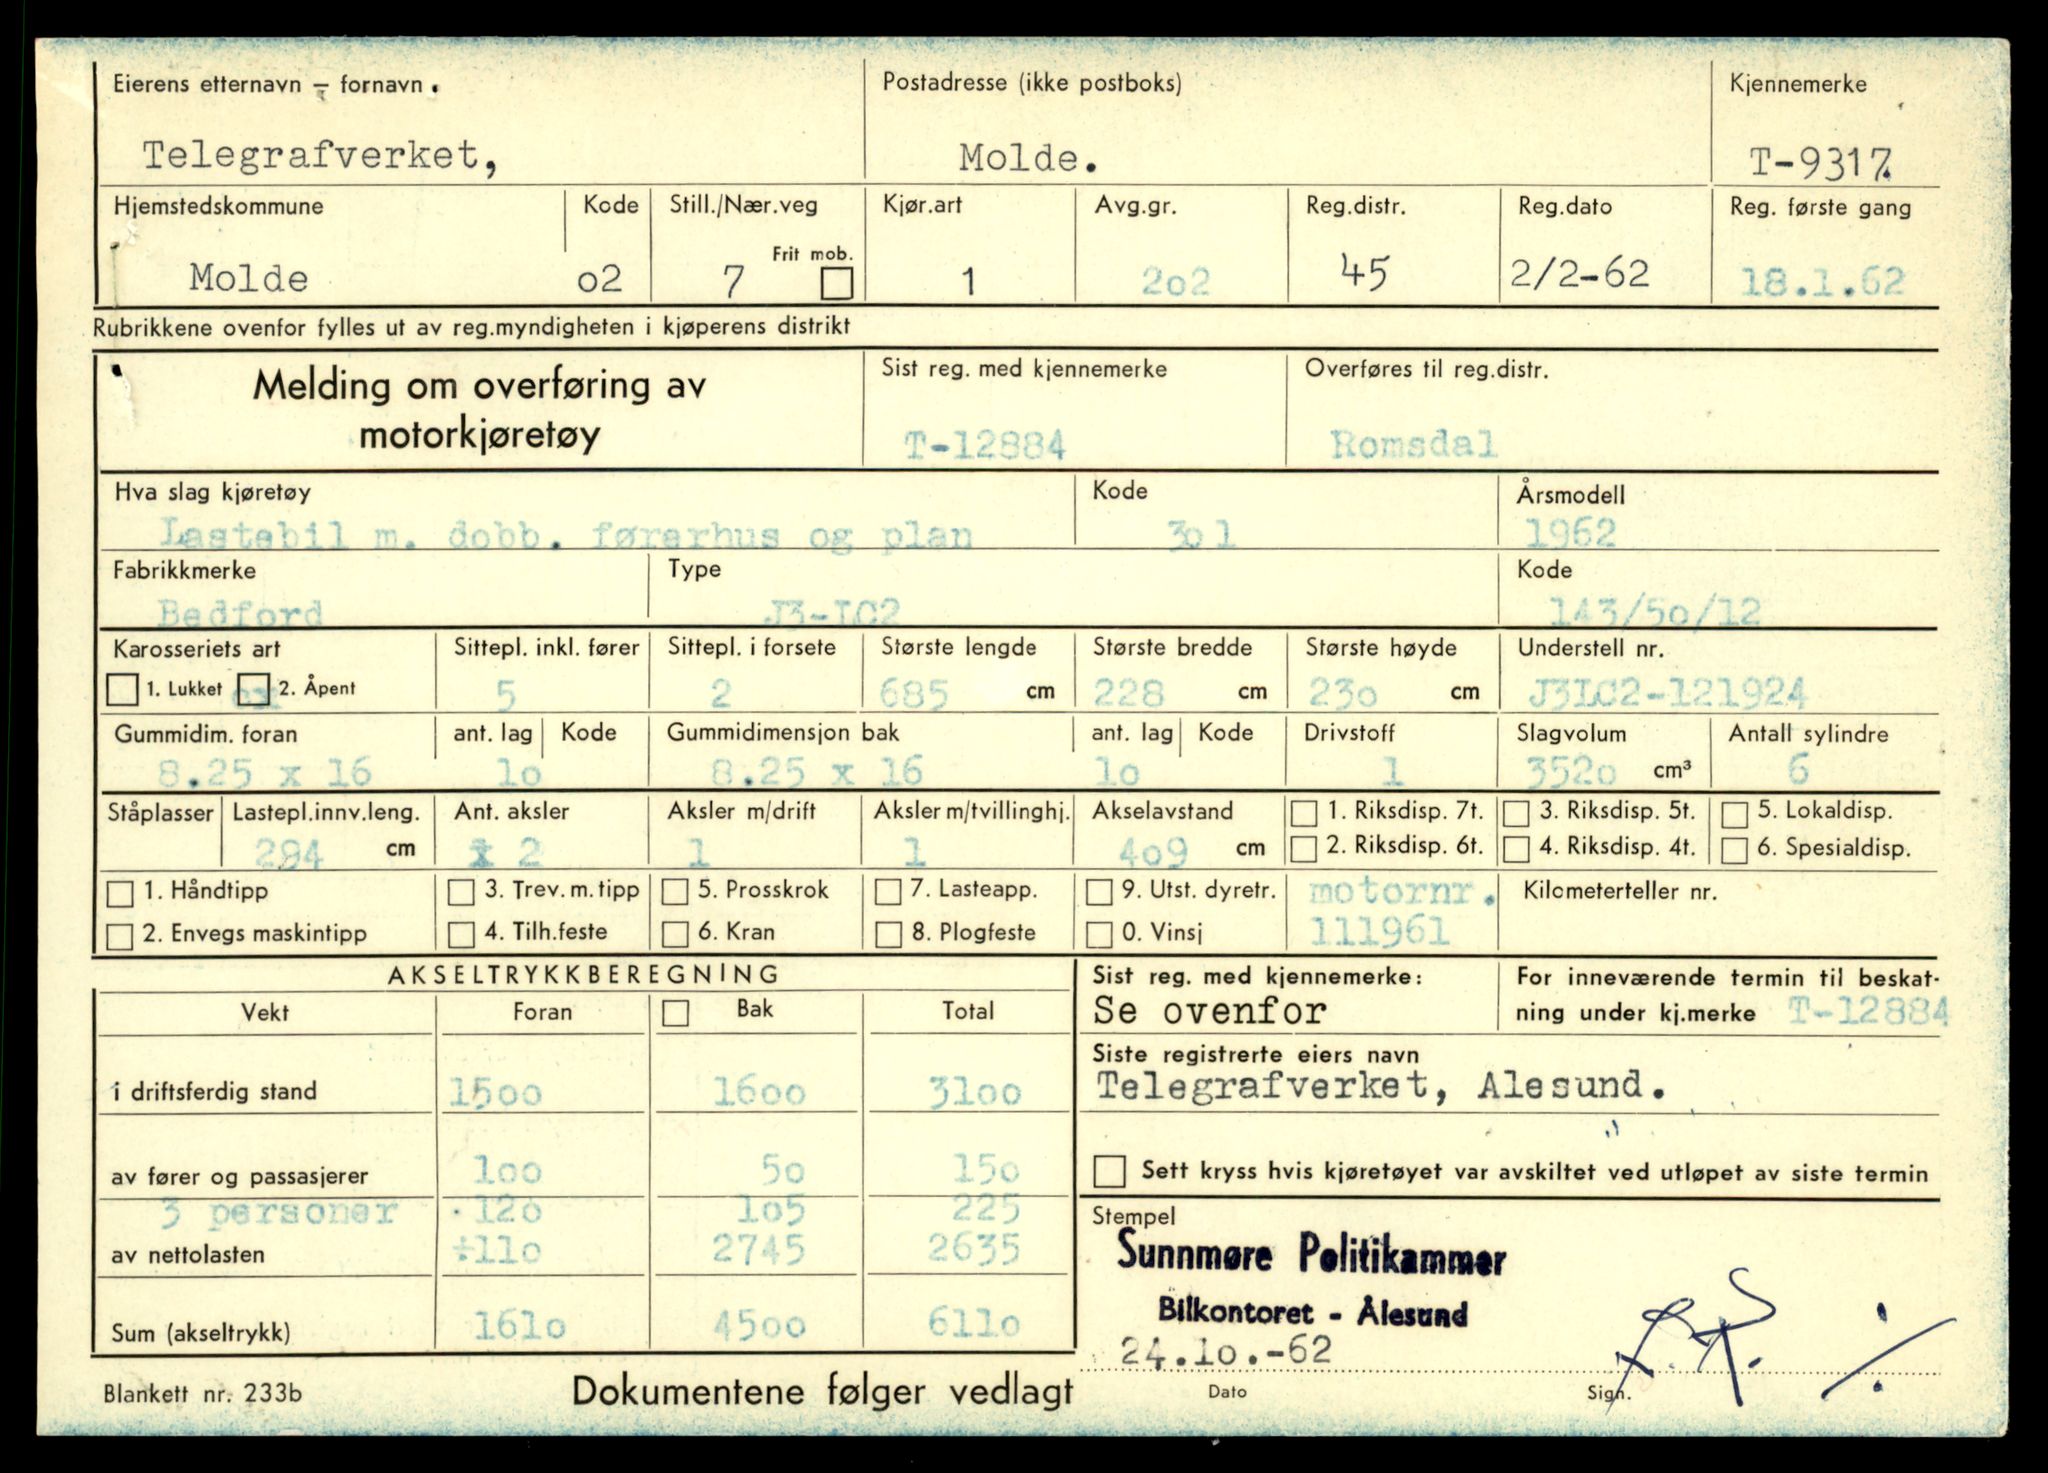 Eierens etternavn – fornavn. Postadresse (ikke postboks) Kjennemerke
Telegrafverket, Molde. T-9317.
Hjemstedskommune Kode Still./Nær.veg Kjør.art Avg.gr. Reg.distr. Reg.dato Reg. første gang
Frit mob.
Molde o2 7 1 2o2 45 2/2-62 18.1.62
Rubrikkene ovenfor fylles ut av reg.myndigheten i kjøperens distrikt
Melding om overføring av
motorkjøretøy
Sist reg. med kjennemerke Overføres til reg.distr.
T-12884 Romsdal
Hva slag kjøretøy Kode Årsmodell
Lastebil m. dobb. førerhus og plan 3o1 1962
Fabrikkmerke Type Kode
Bedford J3-LC2 143/5o/12
Karosseriets art Sittepl. inkl. fører Sittepl. i forsete Største lengde Største bredde Største høyde Understell nr.
1. Lukket 2. Åpent 5 2 685 cm 228 cm 23o cm J3LC2-121924
Gummidim. foran ant. lag Kode Gummidimensjon bak ant. lag Kode Drivstoff Slagvolum Antall sylindre
8.25 x 16 1o 8.25 x 16 1o 1 352o cm³ 6
Ståplasser Lastepl.innv.leng. Ant. aksler Aksler m/drift Aksler m/tvillinghj. Akselavstand 1. Riksdisp. 7t. 3. Riksdisp. 5t. 5. Lokaldisp.
294 cm 2 1 1 4o9 cm 2. Riksdisp. 6t. 4. Riksdisp. 4t. 6. Spesialdisp.
1. Håndtipp 3. Trev. m. tipp 5. Prosskrok 7. Lasteapp. 9. Utst. dyretr. motornr. Kilometerteller nr.
2. Envegs maskintipp 4. Tilh.feste 6. Kran 8. Plogfeste 0. Vinsj 111961
AKSELTRYKKBEREGNING
Vekt Foran Bak Total
i driftsferdig stand 15oo 16oo 31oo
av fører og passasjerer 1oo 5o 15o
3 personer 12o 1o5 225
av nettolasten ÷11o 2745 2635
Sum (akseltrykk) 161o 45oo 611o
Sist reg. med kjennemerke: For inneværende termin til beskat-
Se ovenfor ning under kj.merke T-12884
Siste registrerte eiers navn
Telegrafverket, Alesund.
Sett kryss hvis kjøretøyet var avskiltet ved utløpet av siste termin
Stempel
Sunnmøre Politikammer
Bilkontoret - Ålesund
24.1o.-62
Dato Sign.
Blankett nr. 233b Dokumentene følger vedlagt